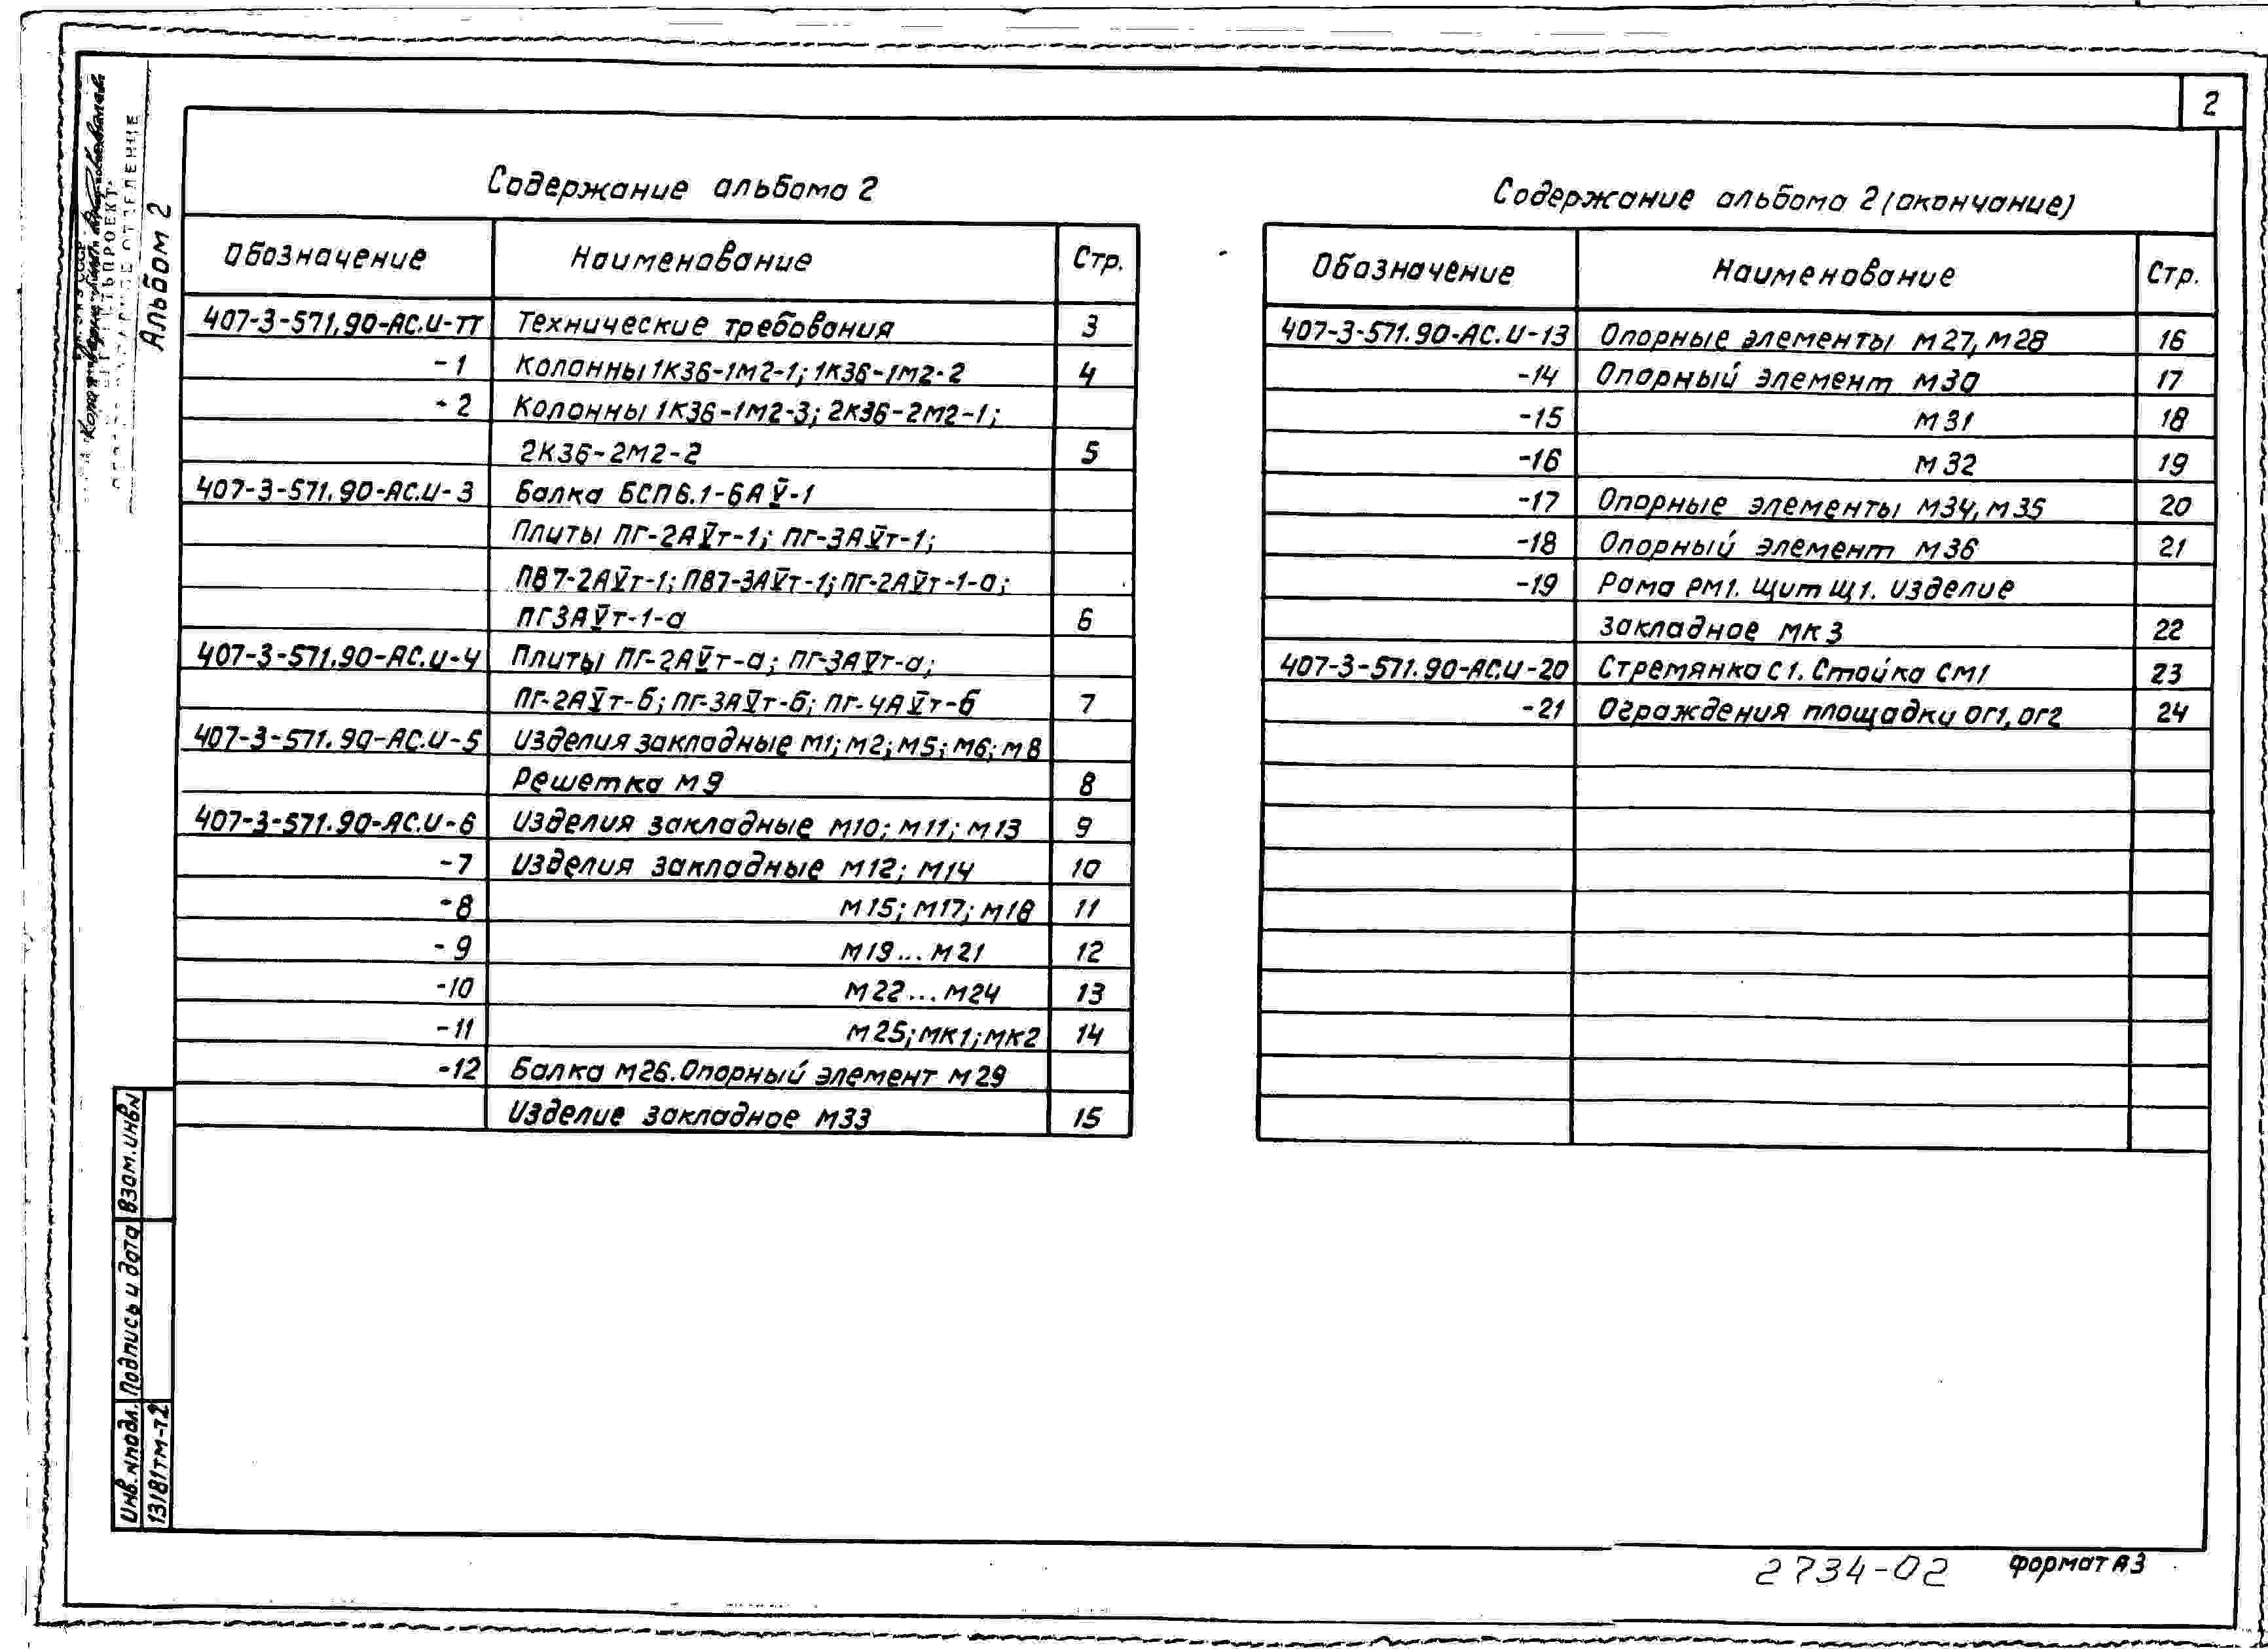 2
Альбом 2
Содержание альбома 2
Обозначение Наименование Стр.
407-3-571.90-АС.И-ТТ Технические требования 3
-1 Колонны 1К36-1М2-1; 1К36-1М2-2 4
-2 Колонны 1К36-1М2-3; 2К36-2М2-1;
2К36-2М2-2 5
407-3-571.90-АС.И-3 Балка БСП6.1-6АV-1
Плиты ПГ-2АVт-1; ПГ-3АVт-1;
ПВ7-2АVт-1; ПВ7-3АVт-1; ПГ-2АVт-1-а;
ПГ3АVт-1-а 6
407-3-571.90-АС.И-4 Плиты ПГ-2АVт-а; ПГ-3АVт-а;
ПГ-2АVт-б; ПГ-3АVт-б; ПГ-4АVт-б 7
407-3-571.90-АС.И-5 Изделия закладные М1; М2; М5; М6; М8
Решетка М9 8
407-3-571.90-АС.И-6 Изделия закладные М10; М11; М13 9
-7 Изделия закладные М12; М14 10
-8 М15; М17; М18 11
-9 М19...М21 12
-10 М22...М24 13
-11 М25; МК1; МК2 14
-12 Балка М26. Опорный элемент М29
Изделие закладное М33 15
Содержание альбома 2 (окончание)
Обозначение Наименование Стр.
407-3-571.90-АС.И-13 Опорные элементы М27, М28 16
-14 Опорный элемент М30 17
-15 М31 18
-16 М32 19
-17 Опорные элементы М34, М35 20
-18 Опорный элемент М36 21
-19 Рама РМ1. Щит Щ1. Изделие
закладное МК3 22
407-3-571.90-АС.И-20 Стремянка С1. Стойка СМ1 23
-21 Ограждения площадки ОГ1, ОГ2 24
Взам.инв№
Подпись и дата
Инв.№подл.
13181тм-т2
2734-02
Формат А3